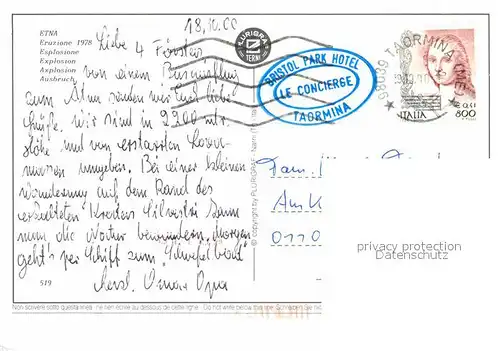 18.10.00
ETNA
Eruzione 1978
Esplosione
Explosion
Explosion
Ausbruch
Liebe 4 Förster
von einem Busausflug
zum Ätna senden wir Euch liebe
Grüße. wir sind in 2300 mtr.
Höhe und von erstarrten Lava-
massen umgeben. Bei einer kleinen
Wanderung auf dem Rand des
erkalteten Kraters Silvestri kann
man die Natur bewundern. Morgen
geht's per Schiff zum
Herzl. Oma + Opa
519
PLURIGRAF
TERNI
© Copyright by PLURIGRAF - Narni
BRISTOL PARK HOTEL
LE CONCIERGE
TAORMINA
98039 TAORMINA (ME)
ITALIA
€ 0,41
800
Am K
0110
privacy protection
Datenschutz
Non scrivere sotto questa linea Ne rien écrire au dessous de cette ligne Do not write below this line